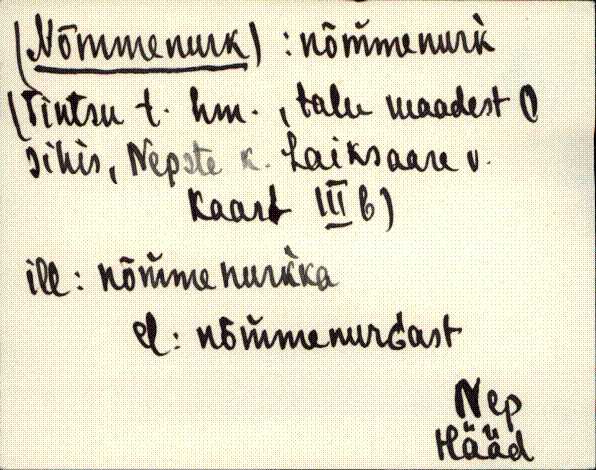 (Nõmmenurk) : nõm̆menurk̀
(Tintsu t. hm., talu maadest O
sihis, Nepste k. Laiksaare v.
Kaart III b)
ill: nõm̆menurk̀ka
el: nõm̆menurGast
Nep
Hääd